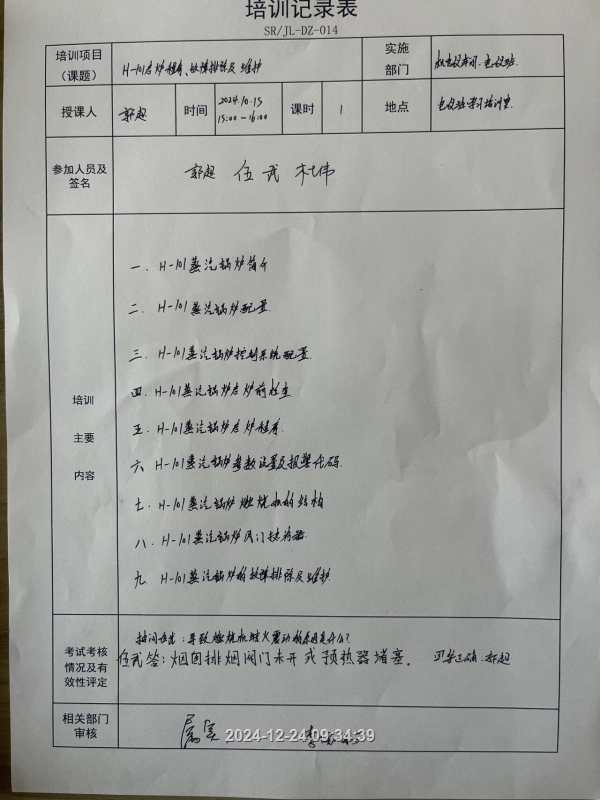 培训记录表
SR/JL-DZ-014
培训项目
（课题）
H-101启炉程序、故障排除及维护
实施
部门
电仪班
授课人
郭超
时间
2024.10.15
15:00-16:00
课时
1
地点
电仪班学习培训室
参加人员及
签名
郭超 伍武 杜伟
培训
主要
内容
一、H-101蒸汽锅炉简介
二、H-101蒸汽锅炉配置
三、H-101蒸汽锅炉控制系统配置
四、H-101蒸汽锅炉启炉前检查
五、H-101蒸汽锅炉启炉程序
六、H-101蒸汽锅炉参数设置及报警代码
七、H-101蒸汽锅炉燃烧机的结构
八、H-101蒸汽锅炉风门执行器
九、H-101蒸汽锅炉的故障排除及维护
考试考核
情况及有
效性评定
导致燃烧机 震动的原因是什么？
伍武答：烟囱排烟阀门未开或预热器堵塞。 回答正确 郭超
相关部门
审核
属实
2024-12-24 09:34:39